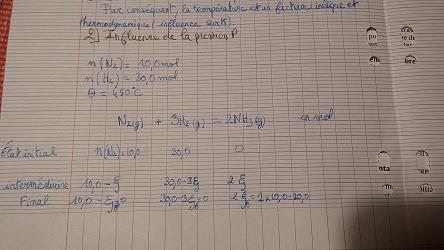 Par conséquent, la température est un facteur cinétique et
thermodynamique (influence sur K).
2) Influence de la pression P
n(N₂) = 10,0 mol
n(H₂) = 30,0 mol
θ = 450°C
N₂(g) + 3H₂(g) = 2NH₃(g) en mol
État initial n(N₂)=10,0 30,0 0
intermédiaire 10,0 - ξ 30,0-3ξ 2ξ
Final 10,0 - ξ =0 30,0-3ξ =0 2ξ = 2x10,0=20,0